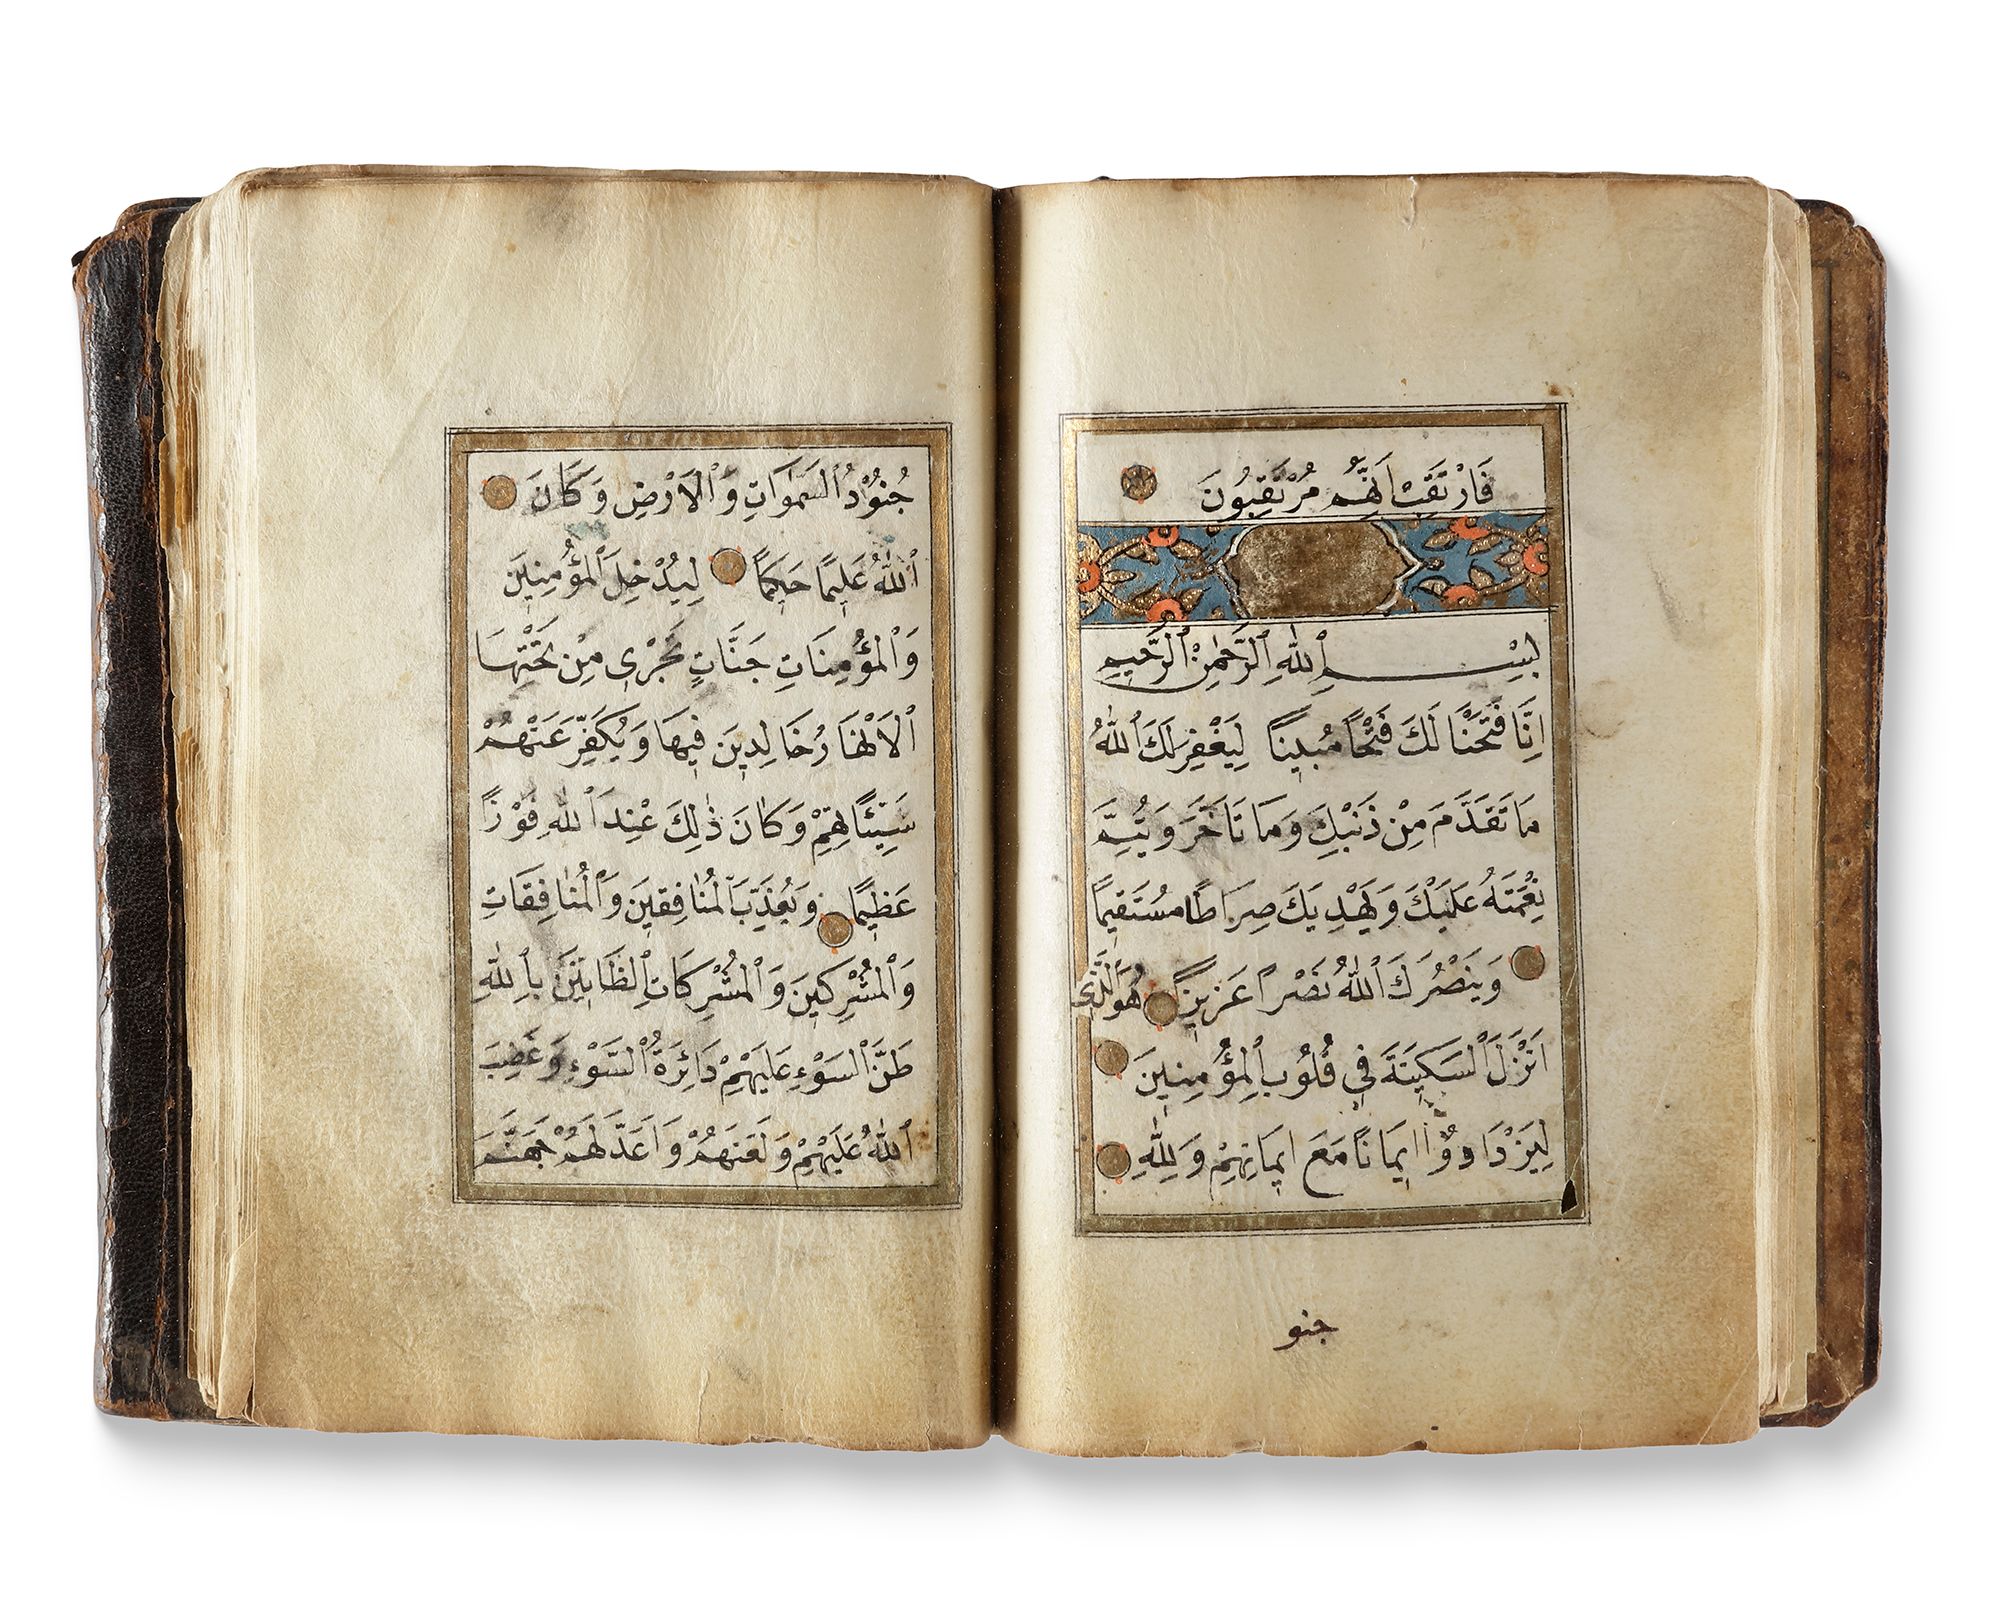 فَارْتَقِبْ اِنَّهُمْ مُرْتَقِبُونَ
بِسْمِ ٱللّٰهِ ٱلرَّحْمٰنِ ٱلرَّحِيمِ
اِنَّا فَتَحْنَا لَكَ فَتْحًا مُبِينًا لِيَغْفِرَ لَكَ ٱللّٰهُ
مَا تَقَدَّمَ مِنْ ذَنْبِكَ وَمَا تَاَخَّرَ وَيُتِمَّ
نِعْمَتَهُ عَلَيْكَ وَيَهْدِيَكَ صِرَاطًا مُسْتَقِيمًا
وَيَنْصُرَكَ ٱللّٰهُ نَصْرًا عَزِيزًا هُوَ ٱلَّذِى
اَنْزَلَ ٱلسَّكِينَةَ فِى قُلُوبِ ٱلْمُؤْمِنِينَ
لِيَزْدَادُوٓا اِيمَانًا مَعَ اِيمَانِهِمْ وَلِلّٰهِ
جنو
جُنُودُ ٱلسَّمٰوَاتِ وَٱلْاَرْضِ وَكَانَ
ٱللّٰهُ عَلِيمًا حَكِيمًا لِيُدْخِلَ ٱلْمُؤْمِنِينَ
وَٱلْمُؤْمِنَاتِ جَنَّاتٍ تَجْرِى مِنْ تَحْتِهَا
ٱلْاَنْهَارُ خَالِدِينَ فِيهَا وَيُكَفِّرَ عَنْهُمْ
سَيِّئَاتِهِمْ وَكَانَ ذٰلِكَ عِنْدَ ٱللّٰهِ فَوْزًا
عَظِيمًا وَيُعَذِّبَ ٱلْمُنَافِقِينَ وَٱلْمُنَافِقَاتِ
وَٱلْمُشْرِكِينَ وَٱلْمُشْرِكَاتِ ٱلظَّانِّينَ بِٱللّٰهِ
ظَنَّ ٱلسَّوْءِ عَلَيْهِمْ دَائِرَةُ ٱلسَّوْءِ وَغَضِبَ
ٱللّٰهُ عَلَيْهِمْ وَلَعَنَهُمْ وَاَعَدَّ لَهُمْ جَهَنَّمَ